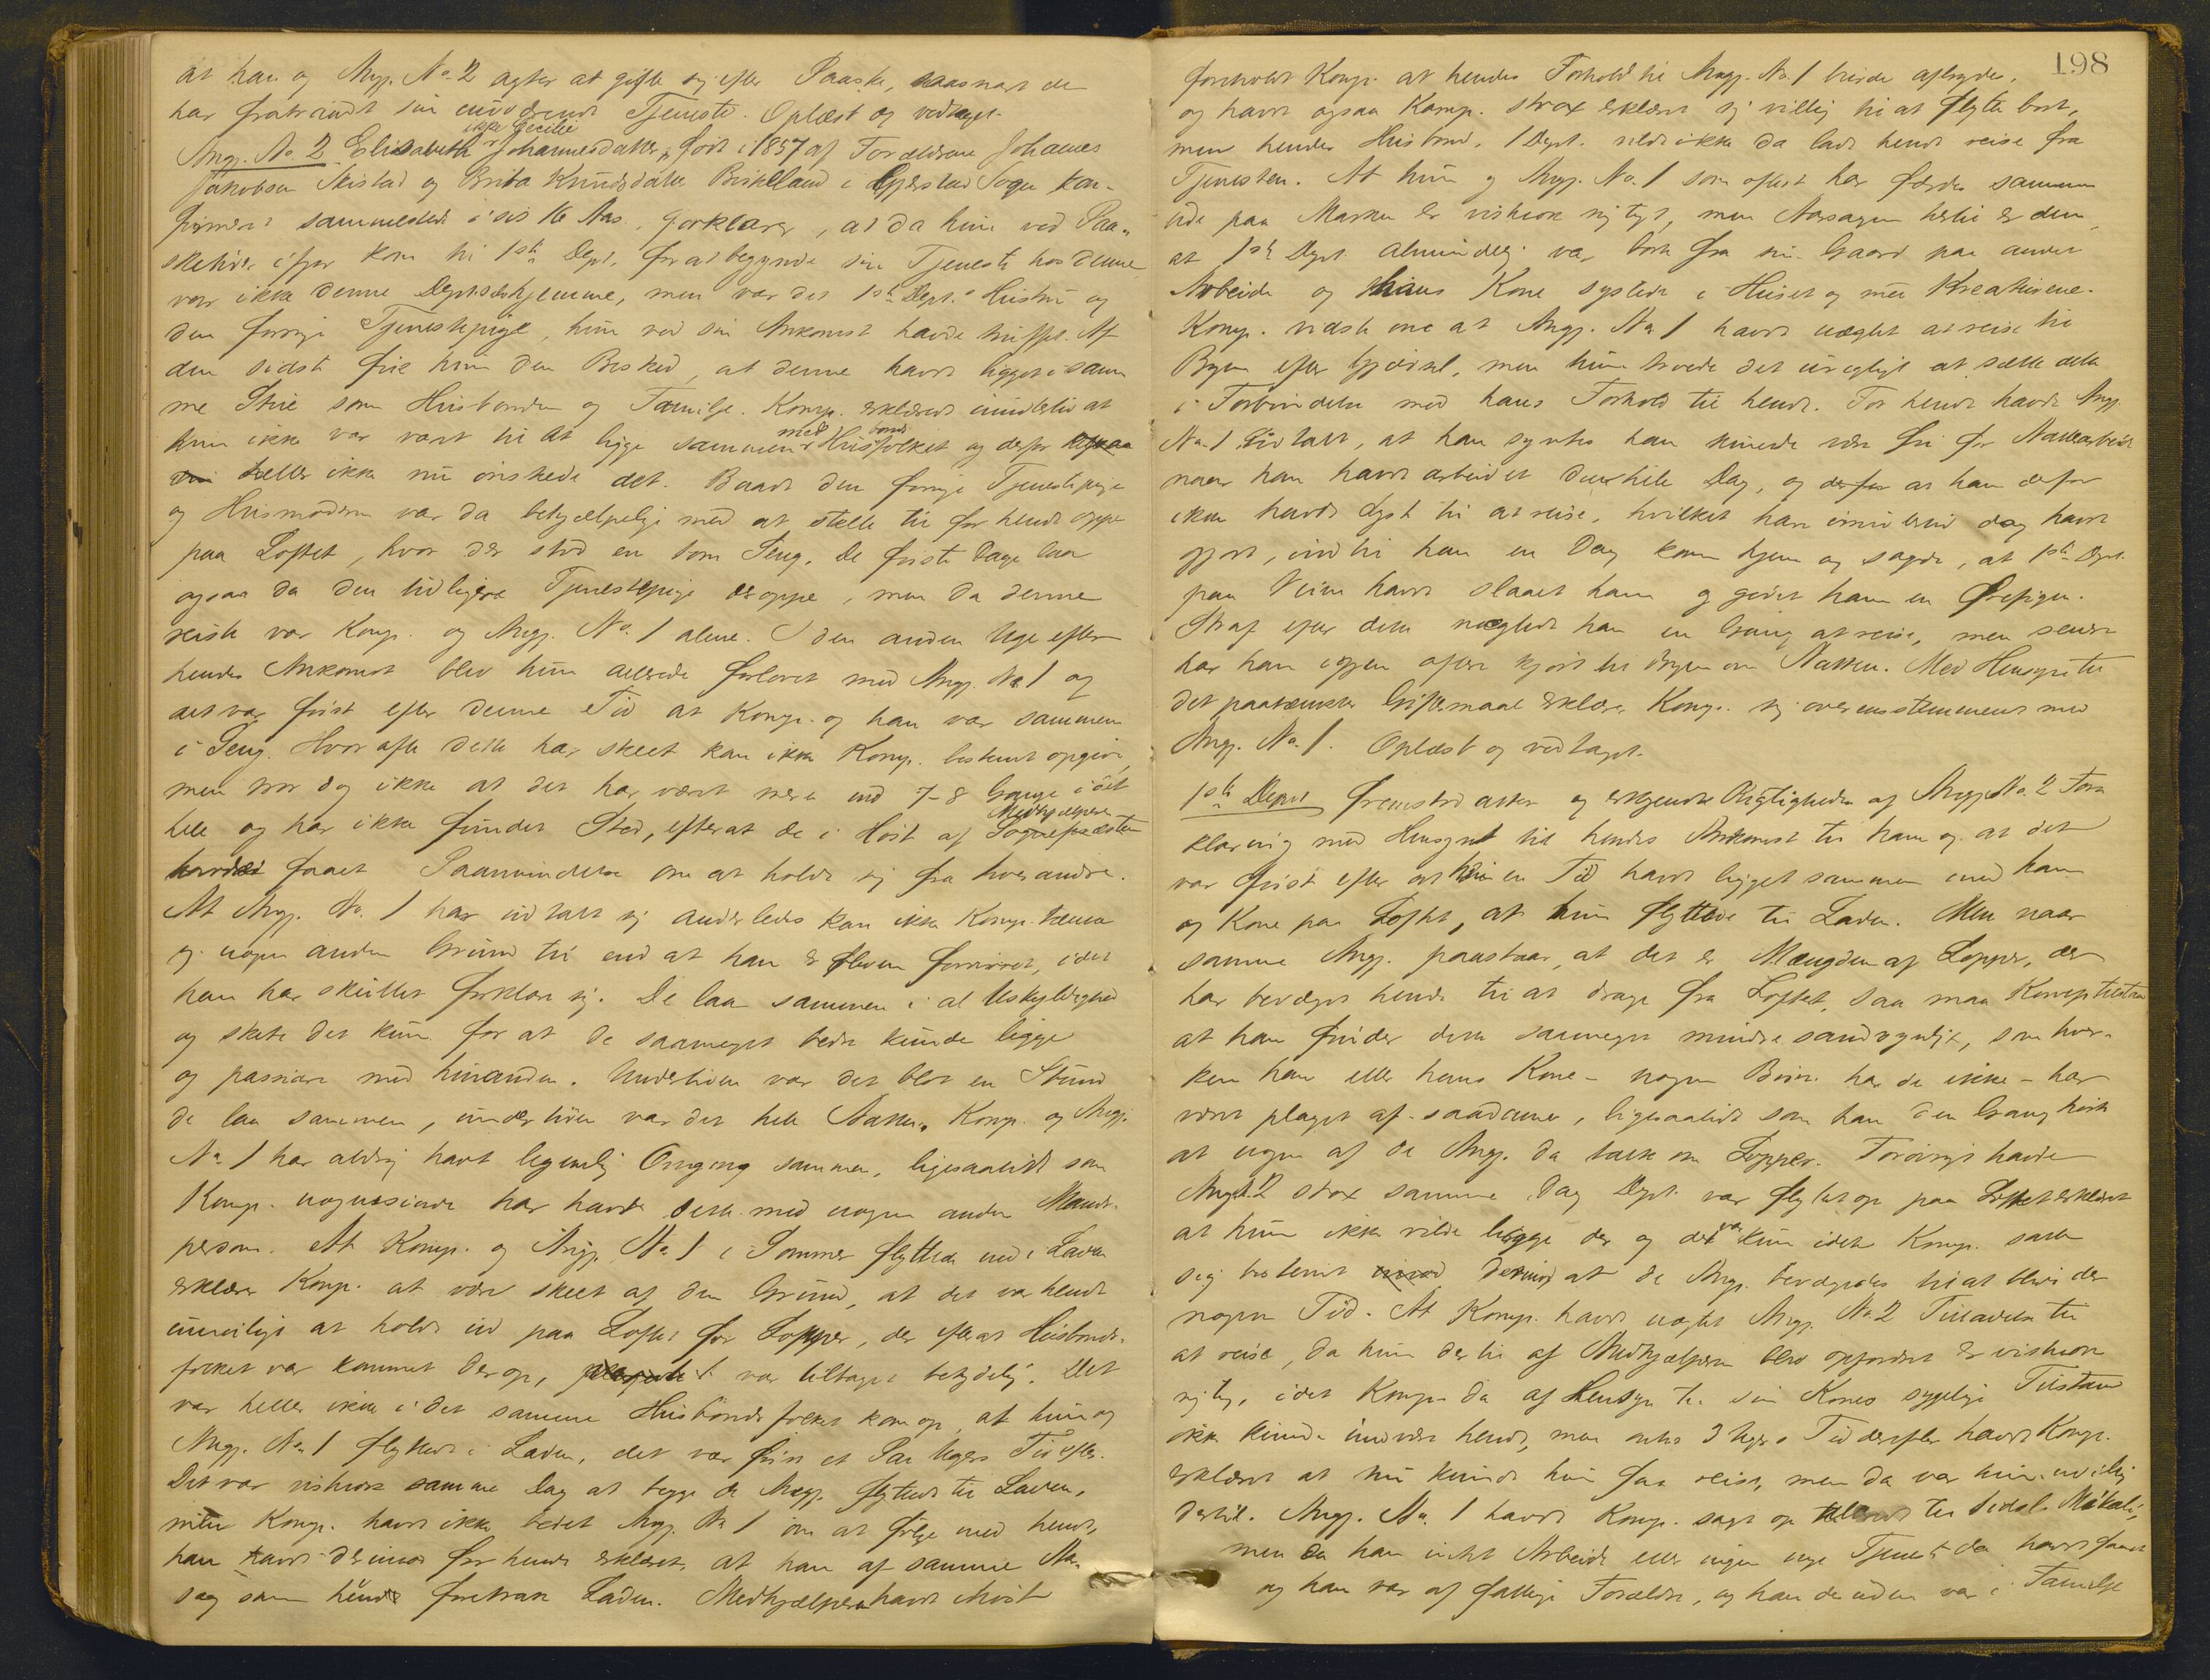 at han og Ang. No 2 agter at gifte sig efter Paaske, saasnart de
har fratraadt sin nuværende Tjeneste. Oplæst og vedtaget.
ikke Cecilie
Ang. No 2 Elisabeth Johannesdatter, født i 1857 af Forældrene Johanes
Jakobsen Skistad og Brita Knudsdatter Birkeland i Gjerstad Sogn kon-
firmert sammesteds i sit 16 Aar, forklarer, at da hun ved Paa-
sketider ifjor kom til 1ste Dept. for at begynde sin Tjeneste hos denne
var ikke denne Dept. hjemme, men var det 1ste Dept.s Hustru og
den forrige Tjenestepige, hun ved sin Ankomst havde truffet. Af
den sidste fik hun den Besked, at denne havde ligget i sam
me Stue som Husbonden og Familje. Komp. erklærede imidlertid at
med bonds
hun ikke var vant til at ligge sammen Husfolket og derfor
heller ikke nu ønskede det. Baade den forrige Tjenestepige
og Husmoderen var da behjælpelige med at stelle til for hende oppe
paa Loftet, hvor der stod en tom Seng. De første Dage laa
ogsaa da den tidligere Tjenestepige deroppe, men da denne
reiste var Komp. og Ang. No. 1 alene. I den anden Uge efter
hendes Ankomst blev hun allerede forlovet med Ang. No 1 og
det var først efter denne Tid at Komp. og han var sammen
i Seng. Hvor ofte dette har skeet kan ikke Komp. bestemt opgive,
men tror dog ikke at det har været mere end 7-8 Gange i det
Medhjælperen
hele og har ikke fundet Sted, efterat de i Høst af Sognepræsten
havde faaet Paamindelse om at holde sig fra hverandre.
At Ang. No. 1 har udtalt sig anderledes kan ikke Komp. tænke
sig nogen anden Grund til end at han er bleven forvirret, idet
han har skullet forklare sig. De laa sammen i al Uskyldighed
og skete det kun for at de saameget bedre kunde ligge
og passiare med hinanden. Undertiden var det blot en Stund
de laa sammen, undertiden var det hele Natten. Komp. og Ang.
No 1 har aldrig havt legemlig Omgang sammen, ligesaalidt som
Komp. nogensinde har havt dette med nogen anden Mands-
person. At Komp. og Ang. No 1 i Sommer flyttede ned i Laden
erklærer Komp. at være skeet af den Grund, at det var hende
umuligt at holde ud paa Loftet for Lopper, der efterat Husbonds-
folket var kommet derop, var tiltaget betydelig. Det
var heller ikke i det samme Husbondsfolket kom op, at hun og
Ang. No 1 flyttede i Laden, det var først et Par Ugers Tid efter.
Det var vistnok samme Dag at begge de Ang. flyttede til Laden,
men Komp. havde ikke bedet Ang. No 1 om at følge med hende,
han havde derimod for hende erklæret, at han af samme Aar
sag som hende foretrak Laden. Medhjælperen havde ivist
198
foreholdt Komp. at hendes Forhold til Ang. No. 1 burde afbrydes,
og havde ogsaa Komp. strax erklæret sig villig til at flytte bort,
men hendes Husbond, 1 Dept. vilde ikke da lade hende reise fra
Tjenesten. At hun og Ang. No. 1 som oftest har færdes sammen
ude paa Marken er vistnok rigtigt, men Aarsagen hertil er den,
at 1ste Dept. almindelig var borte fra sin Gaard paa andet
Arbeide og hans Kone syslede i Huset og med Kreaturene.
Komp. vidste om at Ang. No 1 havde nægtet at reise til
Byen efter Gjødsel, men hun troede det urigtigt at sætte dette
i Forbindelse med hans Forhold til hende. For hende havde Ang.
No. 1 udtalt, at han syntes han kunde være fri for Nattearbeide
naar han havde arbeidet den hele Dag, og at han derfor
ikke havde Lyst til at reise, hvilket han imidlertid dog havde
gjort, indtil han en Dag kom hjem og sagde, at 1ste Dept.
paa Veien havde slaaet ham og givet ham en Ørefigen.
Straf efter dette nægtede han en Gang at reise, men senere
har han igjen oftere kjørt til Byen om Natten. Med Hensyn til
det paatænkte Giftermaal erklærer Komp. sig overensstemmende med
Ang. No. 1. Oplæst og vedtaget.
1ste Dept fremstod atter og erkjendte Rigtigheden af Ang. No. 2 For
klaring med Hensyn til hendes Ankomst til ham og at det
var først efter at hun en Tid havde ligget sammen med ham
og Kone paa Loftet, at hun flyttede til Laden. Men naar
samme Ang. paastaar, at det er Mængden af Lopper, der
har bevæget hende til at drage fra Loftet, saa maa Komp. tilstaa
at han finder dette saameget mindre sandsynligt, som hver-
ken han eller hans Kone - nogen Børn har de ikke - har
været plaget af saadanne, ligesaalidt som han den Gang hørte
at nogen af de Ang. da talte om Lopper. Forøvrigt havde
Ang. No. 2 strax samme Dag Dept. var flyttet op paa Loftet erklæret
at hun ikke vilde ligge der og det var kun idet Komp. satte
sig bestemt derimod at de Ang. bevægedes til at blive der
nogen Tid. At Komp. havde nægtet Ang. No 2 Tilladelse til
at reise, da hun dertil af Medhjælperen blev opfordret er vistnok
rigtigt, idet Komp. da af Hensyn til sin Kones sygelige Tilstand
ikke kunde undvære hende, men en 3 Ugers Tid derefter havde Komp.
erklæret at nu kunde hun faa reise, men da var hun uvillig
dertil. Ang. No. 1 havde Komp. sagt op til sidstl. Mikali,
men da han intet Arbeide eller ingen nye Tjeneste da havde faaet
og han var af fattige Forældre, og han desuden var i Familje